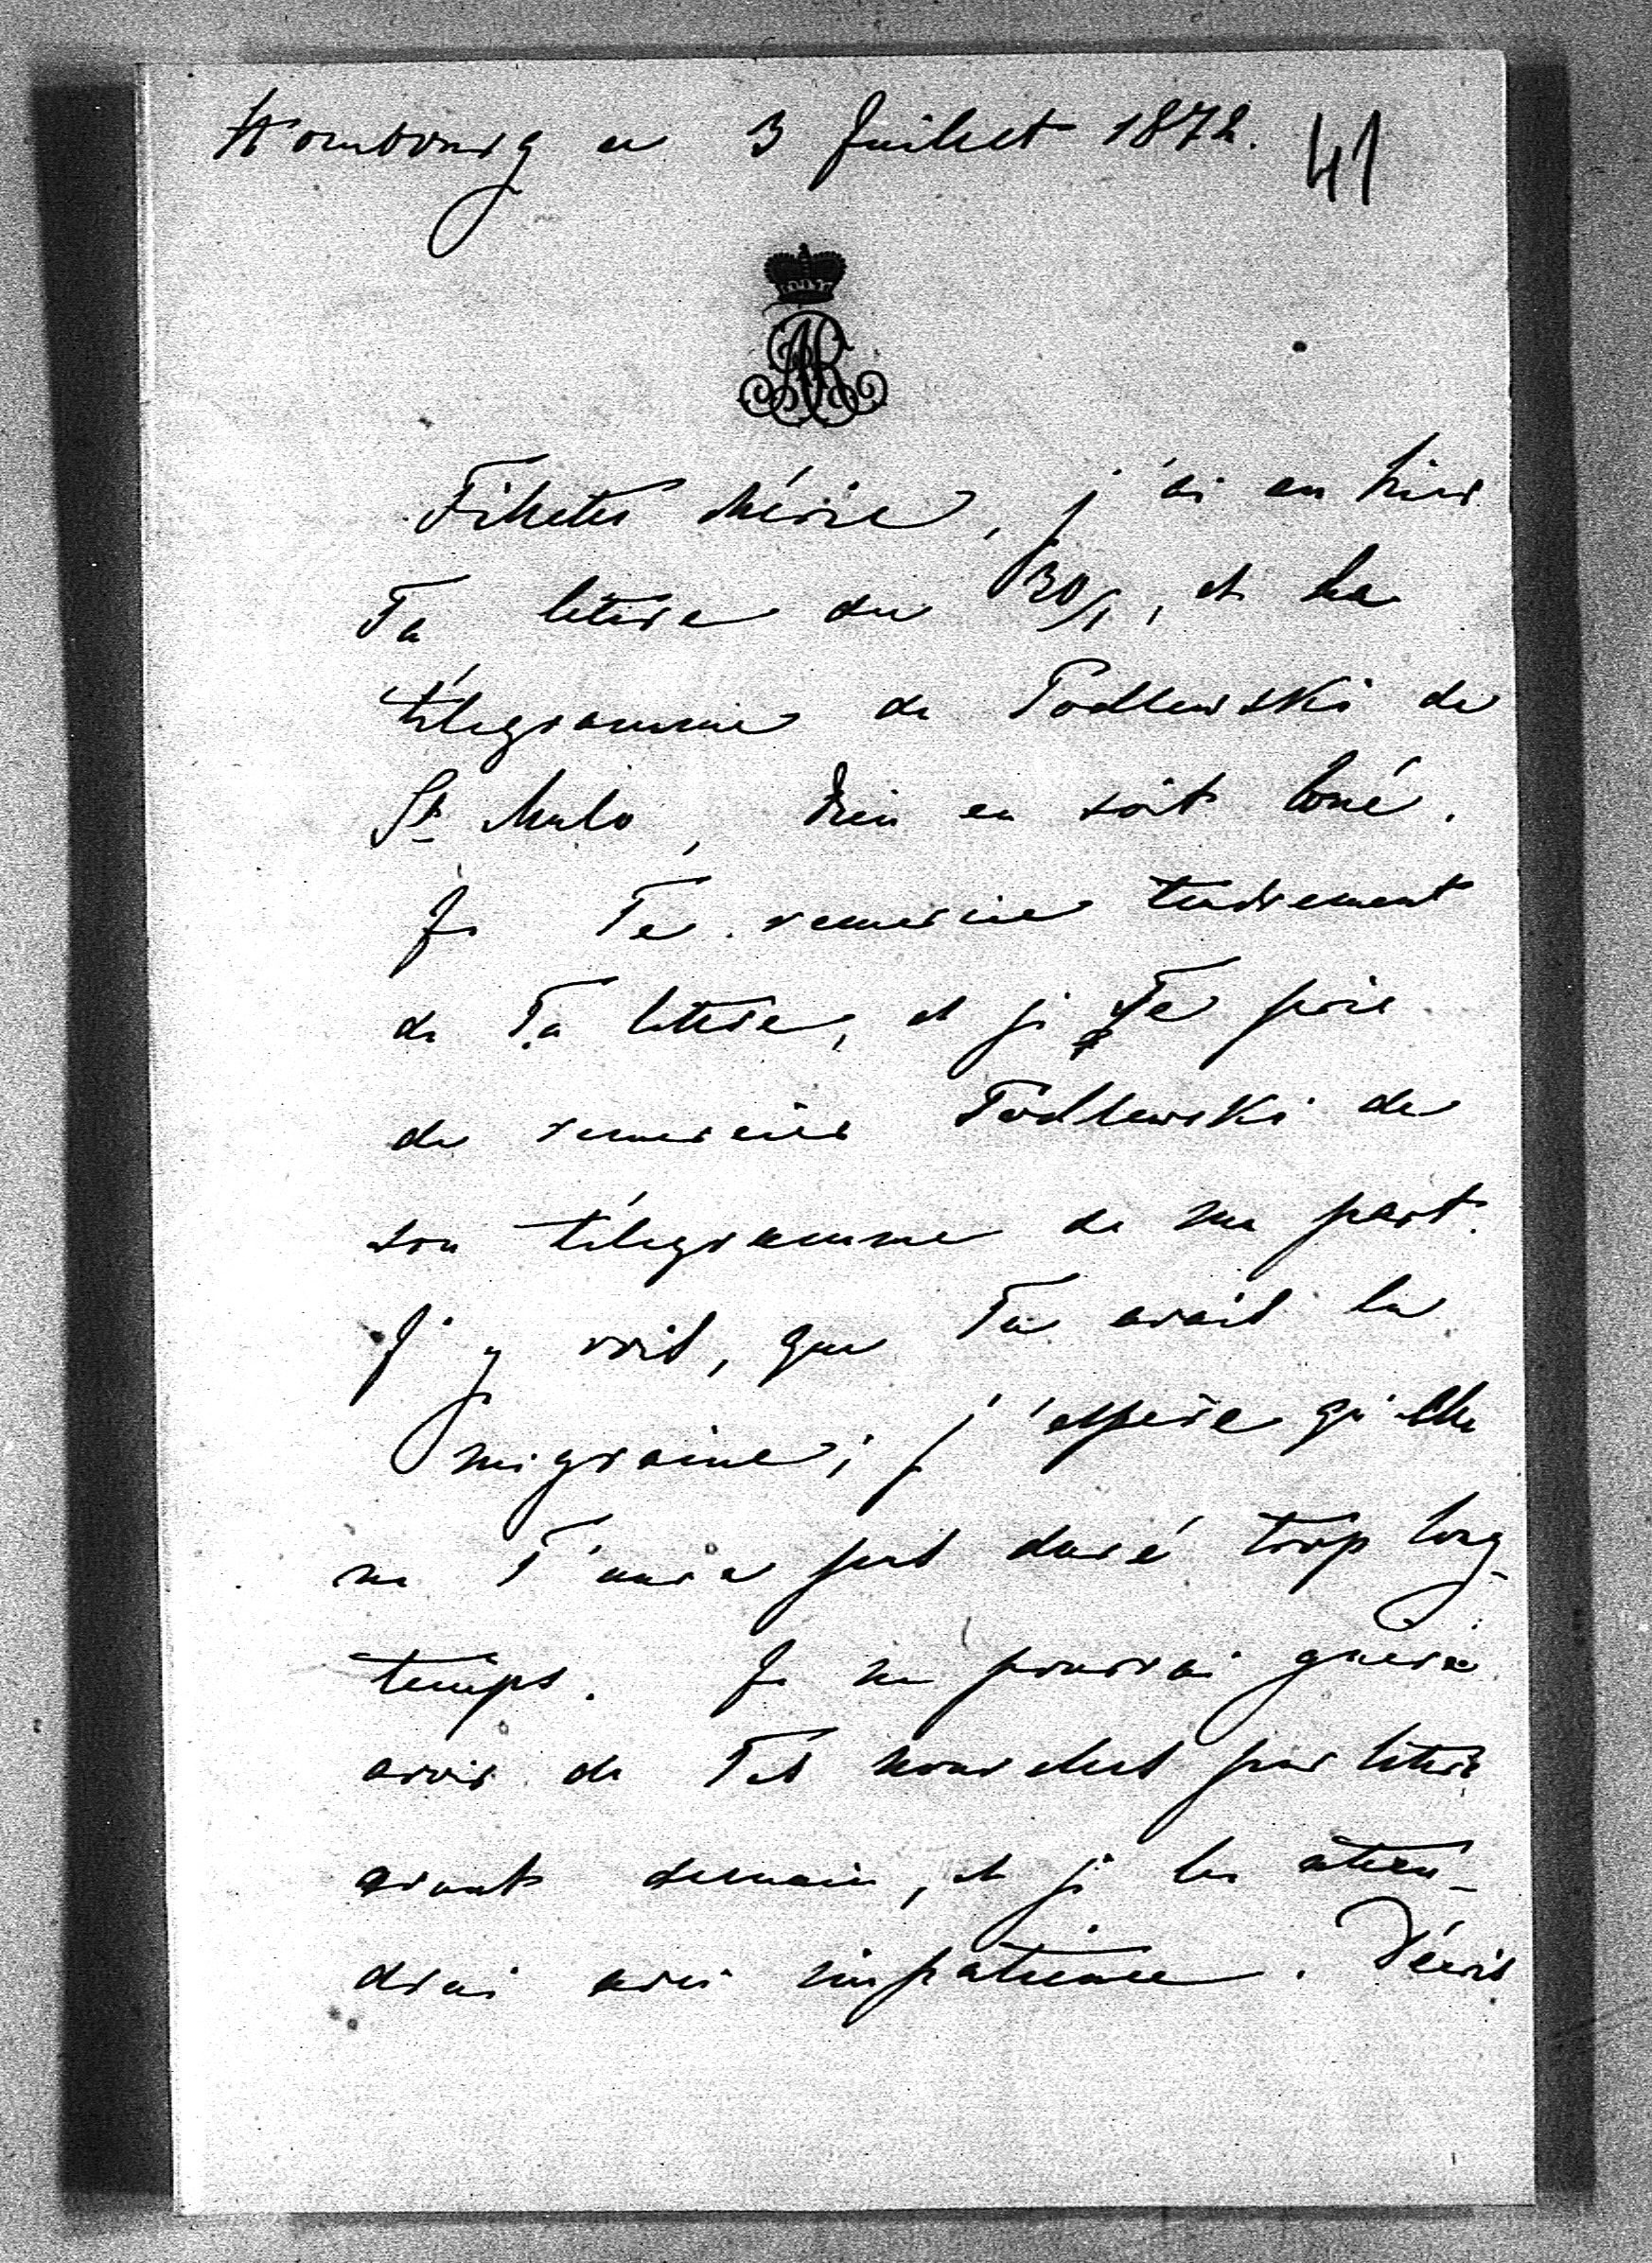 Hombourg ce 3 Juillet 1872.
41
AR
Fillette chérie, j'ai eu hier
Ta lettre du 30/1, et le
télégramme de Podlewski de
St Malo, Dieu en soit loué.
Je Te remercie tendrement
de Ta lettre, et je Te prie
de remercier Podlewski de
son télégramme de ma part.
J'y vois, que Tu avais la
migraine; j'espère qu'elle
ne T'aura pas duré trop long-
temps. Je ne pourrai guère
avoir de Tes nouvelles par lettre
avant demain, et je les atten-
drai avec impatience. J'écris